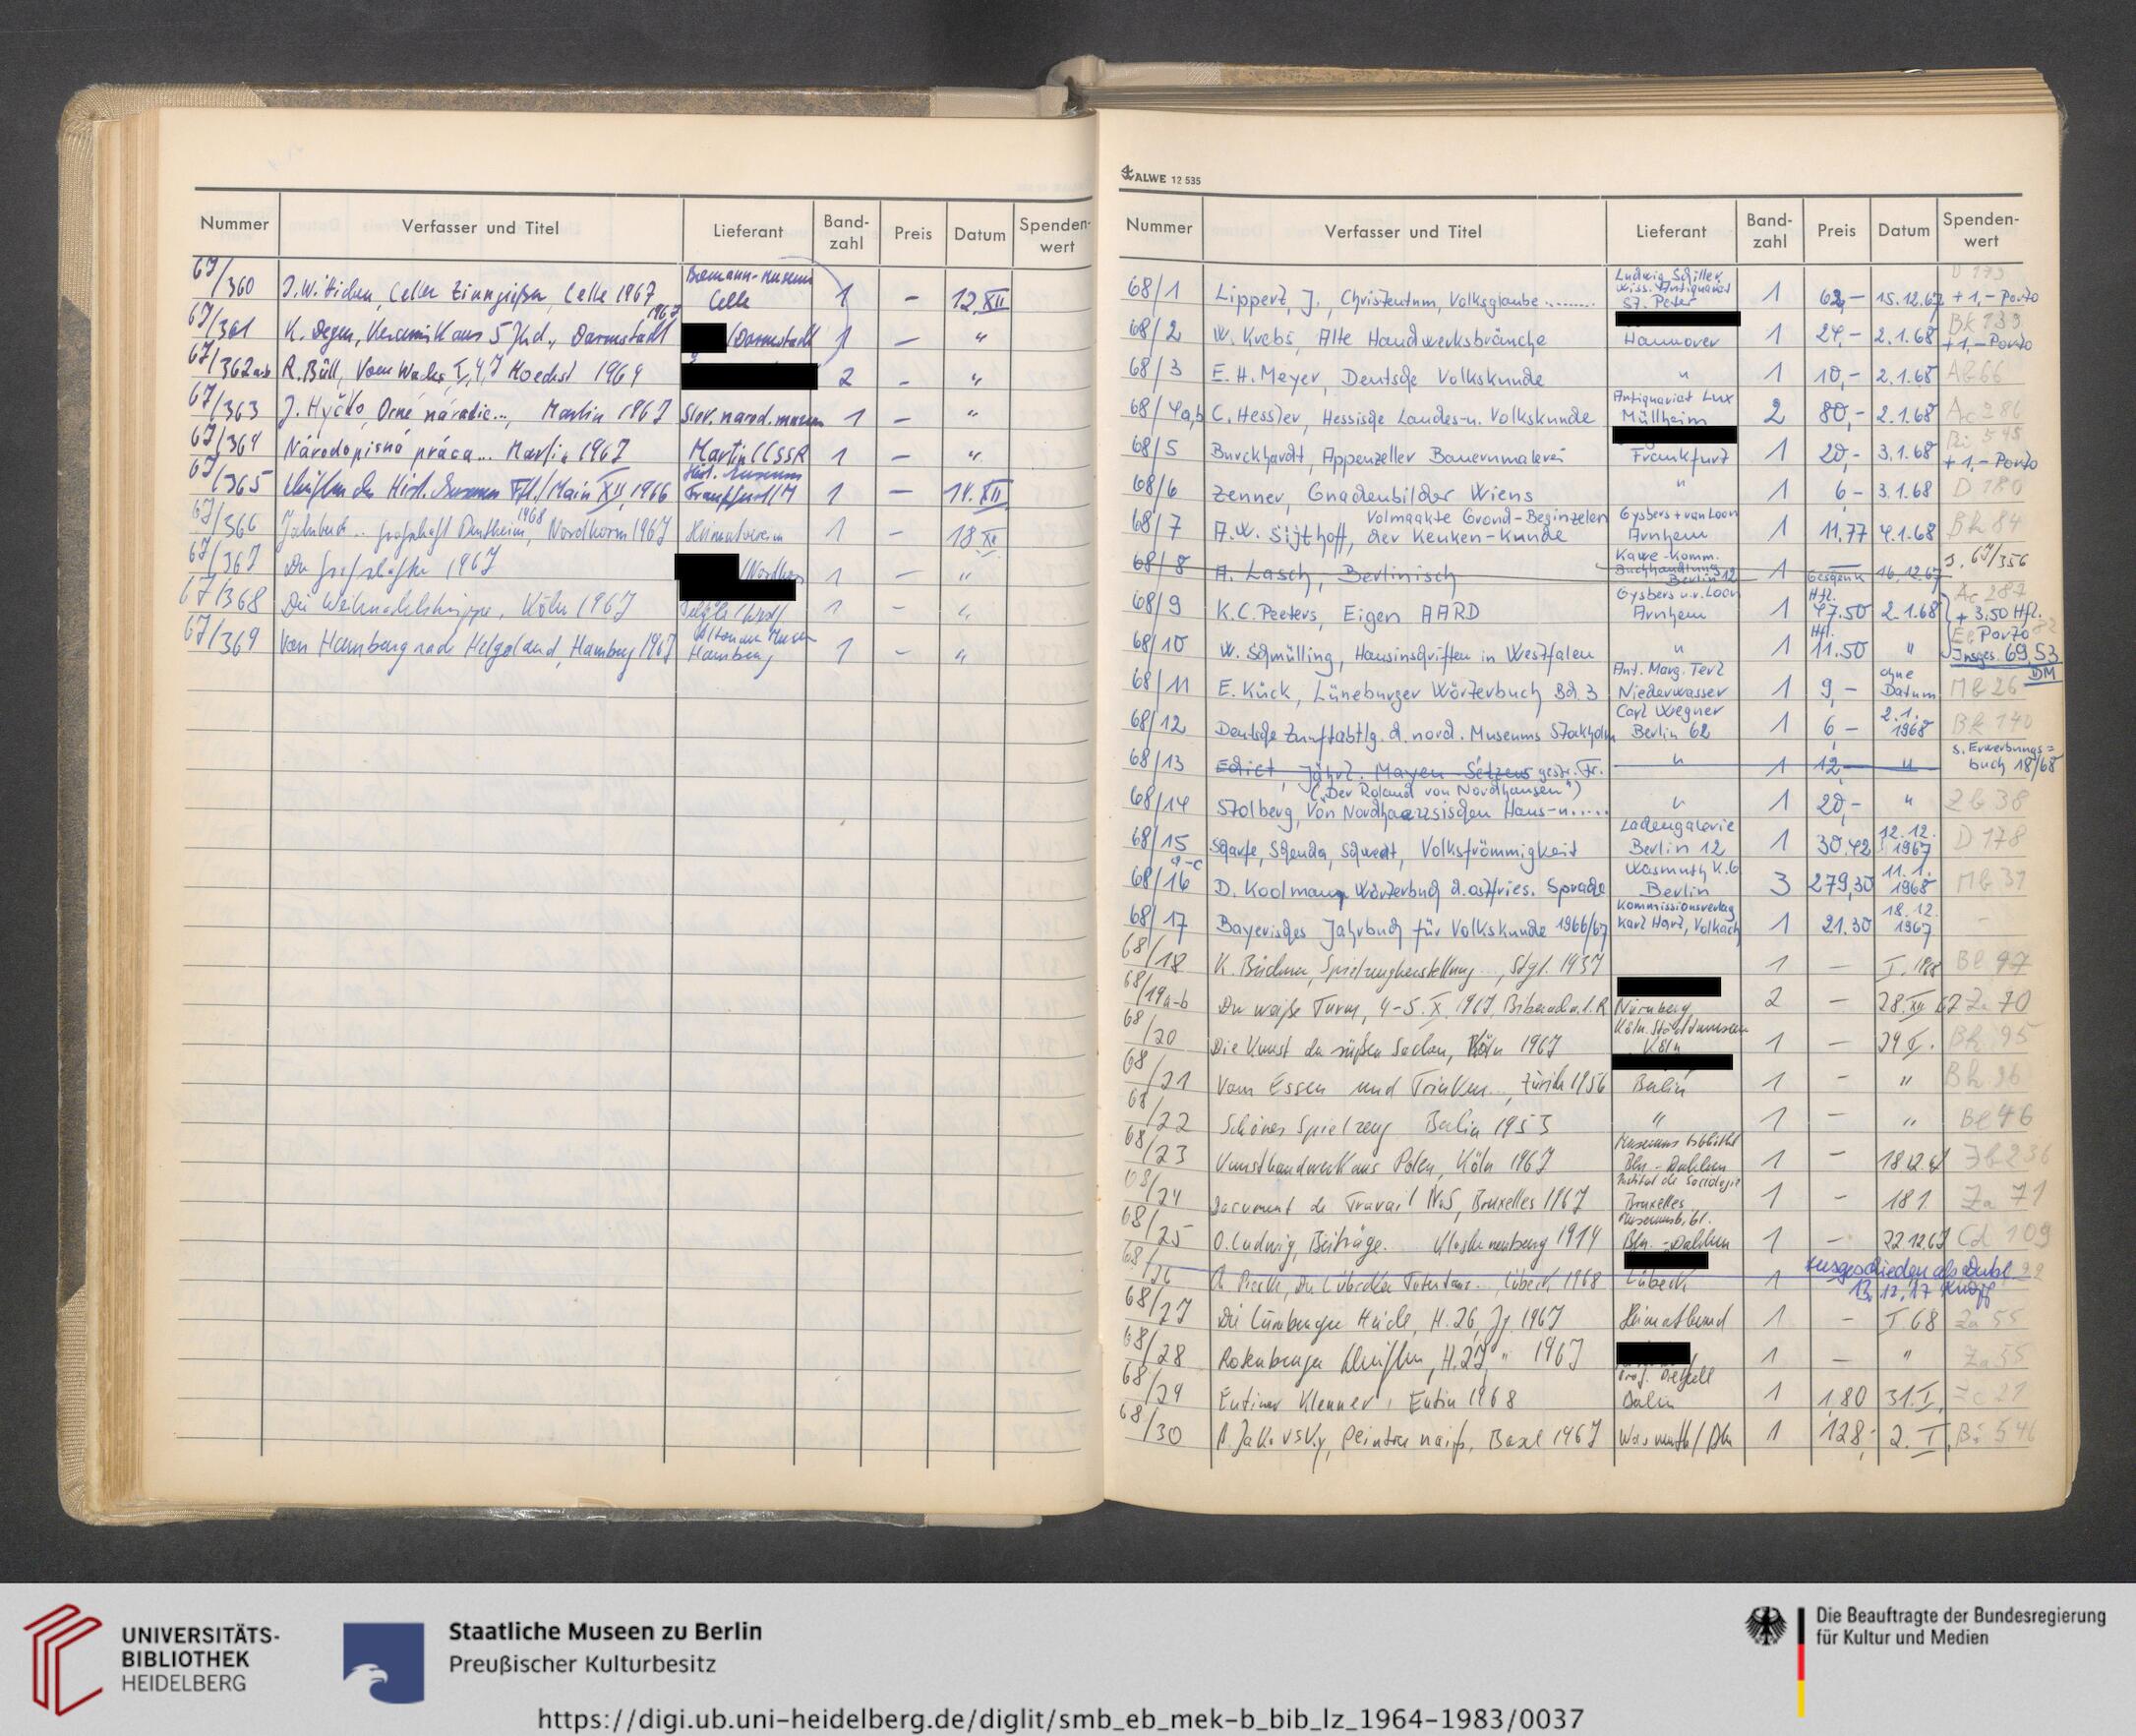 Nummer Verfasser und Titel Lieferant Band-zahl Preis Datum Spenden-wert
67/360 Celler Zinngießer, Celle 1967 Bomann-Museum Celle 1 – 12.XII
67/361 K. Degen, Keramik aus 5 Jhd., Darmstadt 1967 /Darmstadt 1 – "
67/362a+b R. Büll, Vom Wachs, I, 4,7 Hoechst 1964 2 – "
67/363 J. Hyčko, Orné náradie..., Martin 1967 Slov. narod. museum 1 – "
67/364 Národopisná práca... Martin 1967 Martin CSSR 1 – "
67/365 Schriften des Hist. Museums Fft./Main XII, 1966 Hist. Museum Frankfurt/M 1 – 14.XII
67/366 Jahrbuch .. Grafschaft Bentheim 1968, Nordhorn 1967 Heimatverein 1 – 18 XII
67/367 Der Grafschafter 1967 /Nordhorn 1 – "
67/368 Die Weihnachtskrippe, Köln 1967 Telgte/Westf. 1 – "
67/369 Von Hamburg nach Helgoland, Hamburg 1967 Altonaer Museum Hamburg 1 – "
ALWE 12 535
Nummer Verfasser und Titel Lieferant Band-zahl Preis Datum Spenden-wert
68/1 Lippert, J., Christentum, Volksglaube ........ Ludwig Schiller Wiss. Antiquariat St. Peter 1 62,– 15.12.67 + 1,– Porto
68/2 W. Krebs, Alte Handwerksbräuche Hannover 1 24,– 2.1.68 Bk 139 + 1,– Porto
68/3 E. H. Meyer, Deutsche Volkskunde " 1 10,– 2.1.68 Ab 66
68/4a,b C. Hessler, Hessische Landes- u. Volkskunde Antiquariat Lux Müllheim 2 80,– 2.1.68 Ac 286
68/5 Burckhardt, Appenzeller Bauernmalerei Frankfurt 1 20,– 3.1.68 Bi 545 + 1,– Porto
68/6 Zenner, Gnadenbilder Wiens " 1 6 – 3.1.68 D 180
68/7 A.W. Sijthoff, Volmaakte Grond-Beginzelen der Keuken-Kunde Gysbers + van Loon Arnhem 1 11.77 4.1.68 Bh 84
68/8 A. Lasch, Berlinisch Kawe-Komm. Buchhandlung Berlin 12 1 Geschenk 16.12.67 s. 67/356
68/9 K.C. Peeters, Eigen AARD Gysbers u.v. Loon Arnhem 1 Hfl. 47.50 2.1.68 Ac 287 + 3.50 Hfl.
68/10 W. Schmülling, Hausinschriften in Westfalen " 1 Hfl. 11.50 " Porto Insges. 69,53 DM
68/11 E. Kück, Lüneburger Wörterbuch Bd. 3 Ant. Marg. Terl Niederwasser 1 9,– ohne Datum Mb 26
68/12 Deutsche Zunftabtlg. d. nord. Museums Stokholm Carl Wegner Berlin 62 1 6,– 2.1. 1968 Bk 140
68/13 Edict, jährl. Mayen-Setzens gestr. Fr. " 1 12,– " s. Erwerbungs=buch 18/68
68/14 Stolberg, Von Nordhaeussischen Haus- u..... ("Der Roland von Nordhausen") " 1 20,– " Zb 38
68/15 Scharfe, Schenda, Schwedt, Volksfrömmigkeit Ladengalerie Berlin 12 1 30.42 12.12. 1967 D 178
68/16 a-c D. Koolman, Wörterbuch d. ostfries. Sprache Wasmuth K.G Berlin 3 279,30 11.1. 1968 Mb 31
68/17 Bayerisches Jahrbuch für Volkskunde 1966/67 Kommissionsverlag Karl Hart, Volkach 1 21.30 18.12. 1967 –
68/18 K. Büchner, Spielzeugherstellung..., Stgt. 1937 1 – I. 1968 Bl 97
68/19a-b Der weiße Turm, 4–5. X. 1967, Biberach a.d.R Nürnberg 2 – 28.XII 67 Za 70
68/20 Die Kunst der süßen Sachen, Köln 1967 Köln. Stadtmuseum Köln 1 – 29 I. Bh 95
68/21 Vom Essen und Trinken..., Zürich 1956 Berlin 1 – " Bh 96
68/22 Schönes Spielzeug Berlin 1953 " 1 – " Bl 46
68/23 Kunsthandwerk aus Polen, Köln 1967 Museums Bibliothek Bln.-Dahlem 1 – 18.12.67 Jb 236
68/24 Document de Travail No 5, Bruxelles 1967 Institut de Sociologie Bruxelles 1 – 18 1. Za 71
68/25 O. Ludwig, Beiträge... Klosterneuburg 1914 Museumsbibl. Bln.-Dahlem 1 – 22.12.67 Cd 109
68/26 Der Lübecker Totentanz..., Lübeck 1968 Lübeck 1 Ausgeschieden als Dubl. 13.12.17
68/27 Die Lüneburger Heide, H. 26, Jg. 1967 Heimatbund 1 – I 68 Za 55
68/28 Rotenburger Schriften, H. 27, " 1967 1 – " Za 55
68/29 Eutiner Klenner, Eutin 1968 Berlin 1 1,80 31.I. Zc 21
68/30 A. Jakovsky, Peintres naifs, Basel 1967 Wasmuth/Bln 1 128,– 2. I. Bi 546
UNIVERSITÄTS-
BIBLIOTHEK
HEIDELBERG
Staatliche Museen zu Berlin
Preußischer Kulturbesitz
Die Beauftragte der Bundesregierung
für Kultur und Medien
https://digi.ub.uni-heidelberg.de/diglit/smb_eb_mek-b_bib_lz_1964-1983/0037